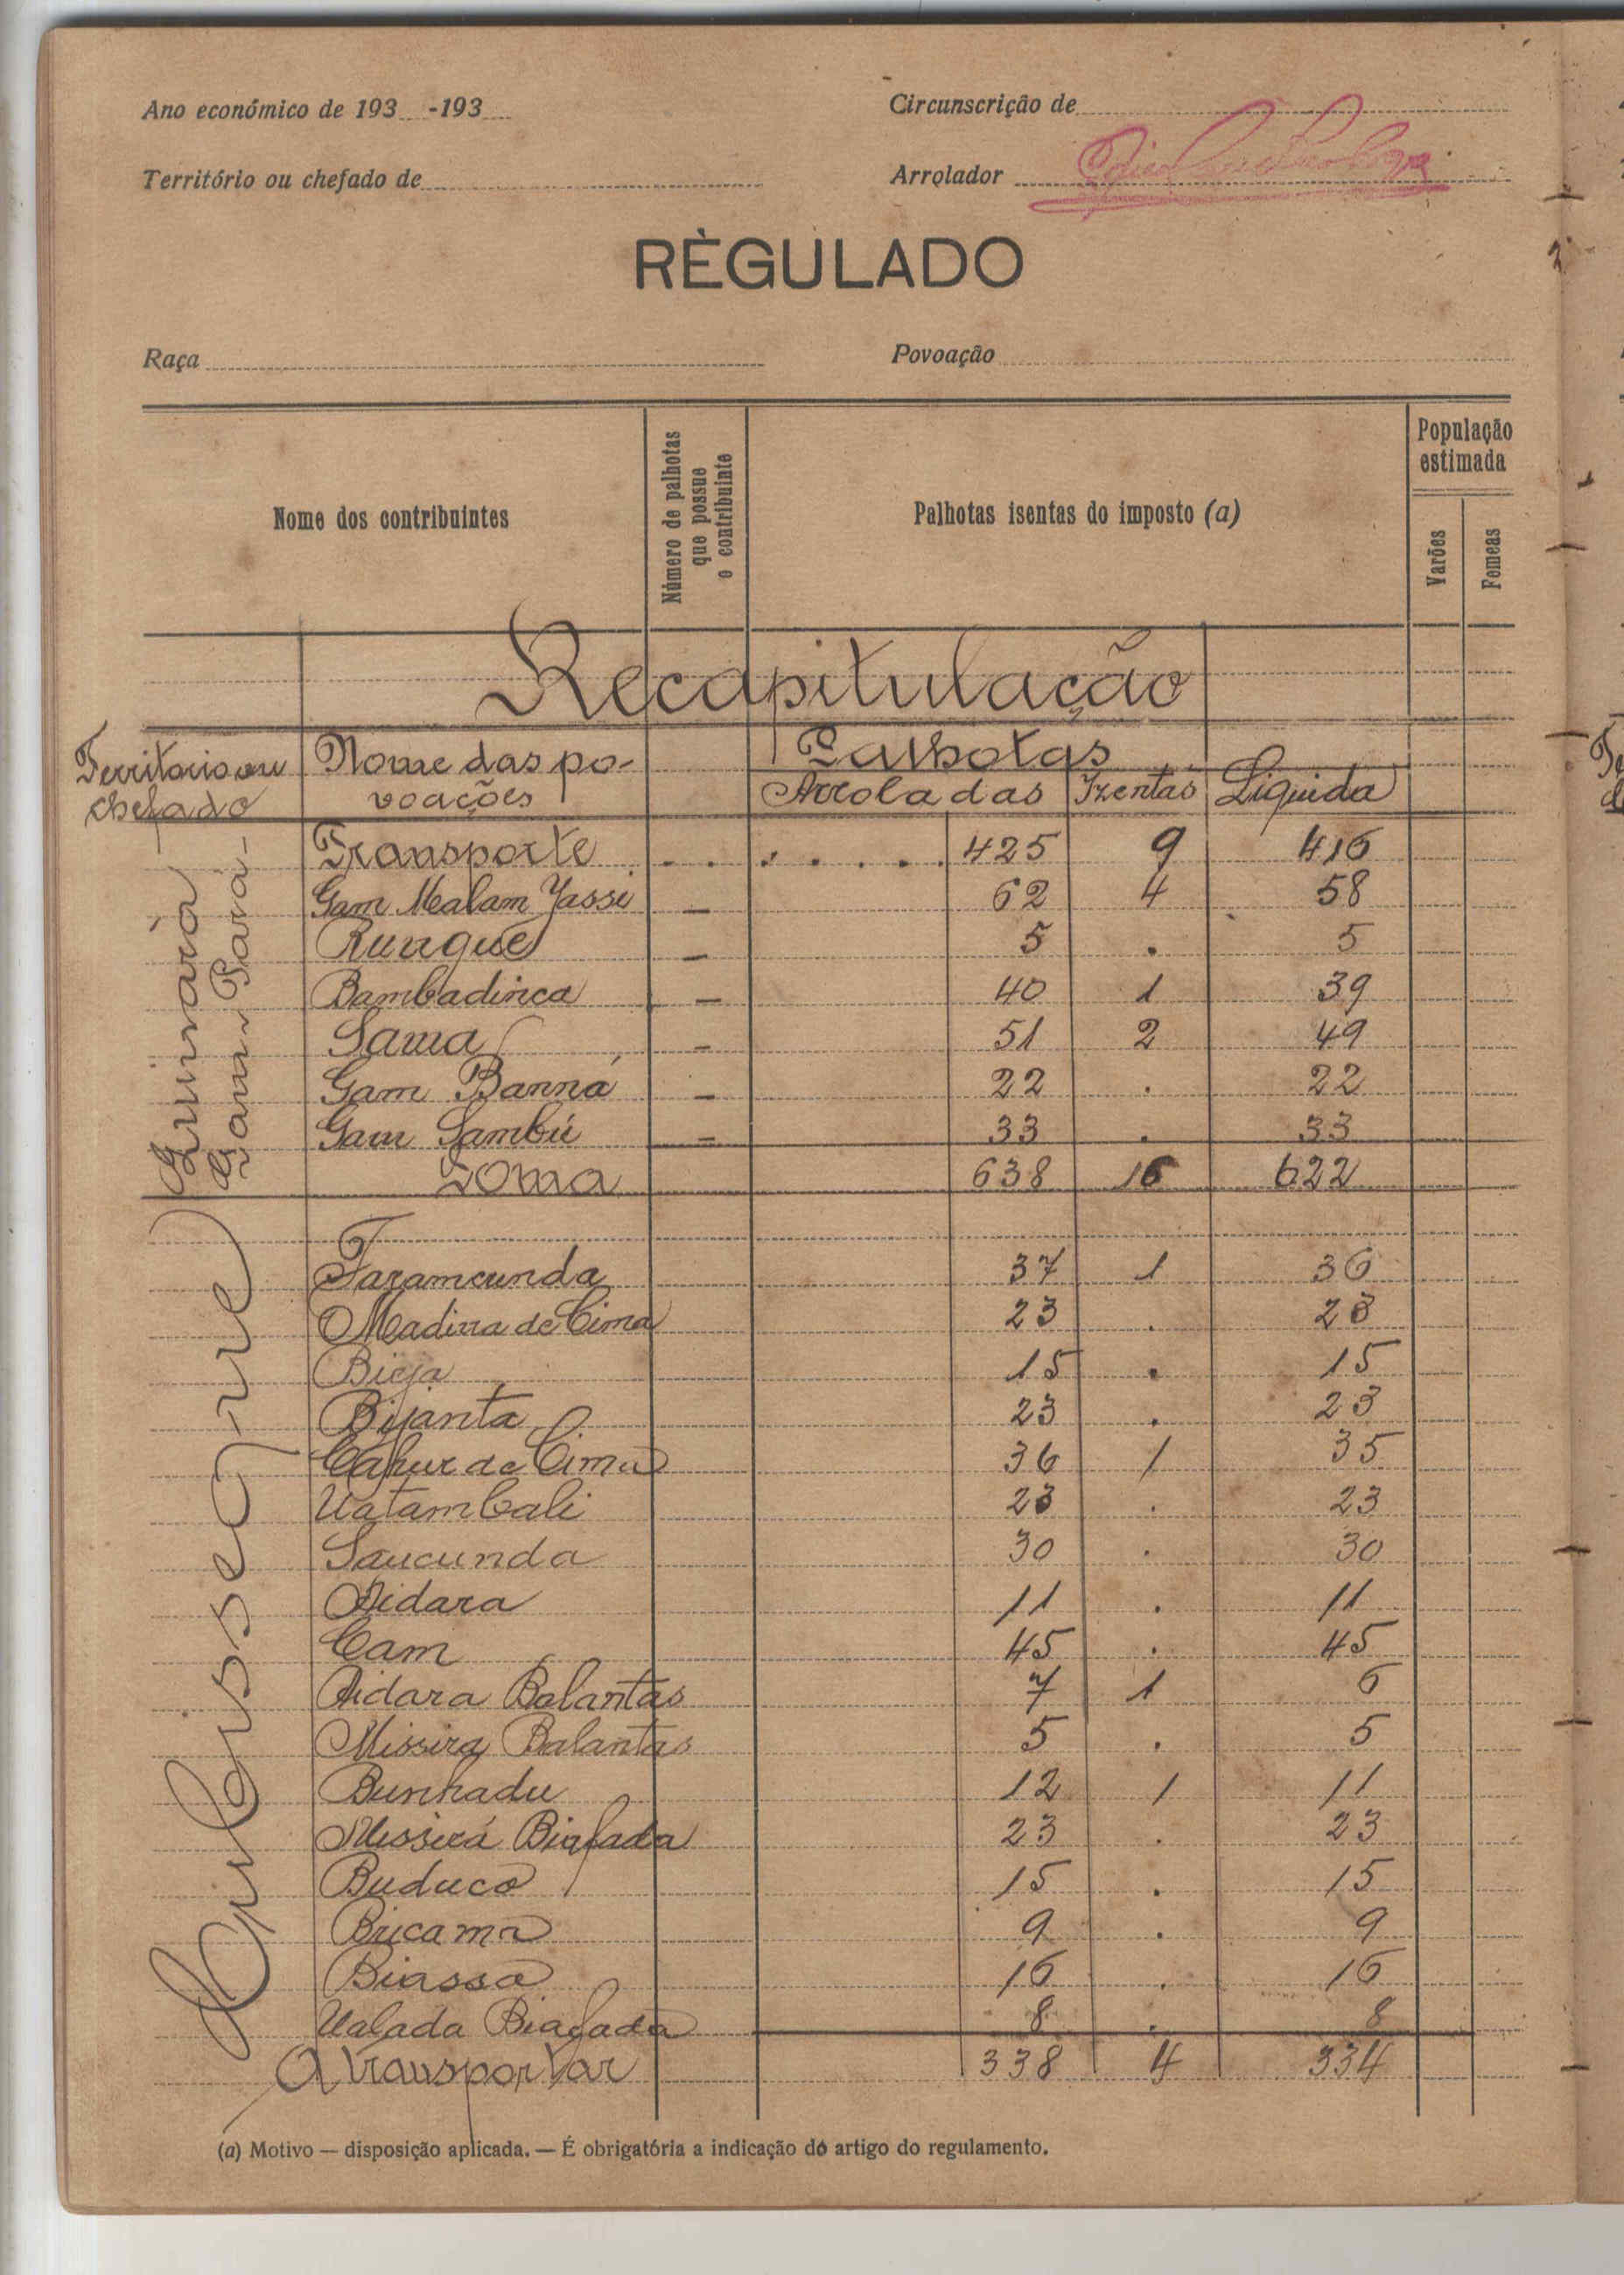 Ano económico de 193 -193 Circunscrição de
Território ou chefado de Arrolador
RÈGULADO
Raça Povoação
Nome dos contribuintes
Número de palhotas que possue o contribuinte
Palhotas isentas do imposto (a)
População estimada
Varões
Femeas
Recapitulação
Territorio ou chefado
Nome das po-
voações
Palhotas
Arroladas Izentas Liquida
Transporte . . . . . . . 425 9 416
Gam Malam Jassi — 62 4 58
Rungue — 5 . 5
Bambadinca — 40 1 39
Sama — 51 2 49
Gam Banna — 22 . 22
Gam Sambú — 33 . 33
Soma 638 16 622
Gam Pará
Faramcunda 37 1 36
Madina de Cima 23 . 23
Bieja 15 . 15
Bijanta 23 . 23
de Cima 36 1 35
Uatambali 23 . 23
Saucunda 30 . 30
Aidara 11 . 11
Cam 45 . 45
Aidara Balantas 7 1 6
Missira Balantas 5 . 5
Bunhadu 12 1 11
Missirá Biafada 23 . 23
Buduco 15 . 15
Bricama 9 . 9
Biassa 16 . 16
Ualada Biafada 8 . 8
A transportar 338 4 334
(a) Motivo — disposição aplicada. — É obrigatória a indicação do artigo do regulamento.